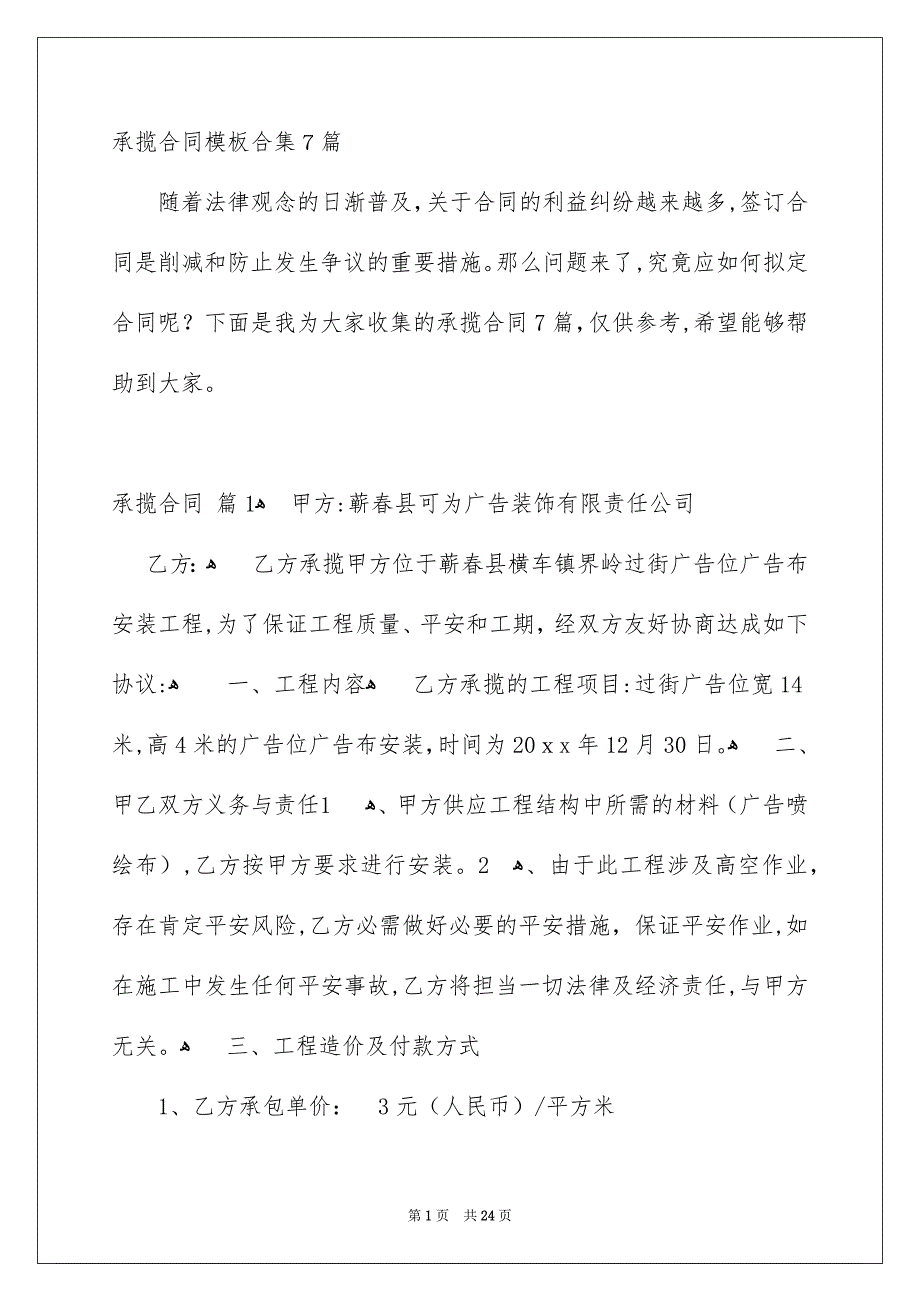 承揽合同模板合集7篇
随着法律观念的日渐普及,关于合同的利益纠纷越来越多,签订合
同是削减和防止发生争议的重要措施。那么问题来了,究竟应如何拟定
合同呢？下面是我为大家收集的承揽合同7篇,仅供参考,希望能够帮
助到大家。
承揽合同 篇1ﻫ 甲方:蕲春县可为广告装饰有限责任公司
乙方：ﻫ 乙方承揽甲方位于蕲春县横车镇界岭过街广告位广告布
安装工程,为了保证工程质量、平安和工期，经双方友好协商达成如下
协议:ﻫ 一、工程内容ﻫ 乙方承揽的工程项目:过街广告位宽14
米,高4米的广告位广告布安装,时间为20xx年12月30日。ﻫ 二、
甲乙双方义务与责任1 ﻫ、甲方供应工程结构中所需的材料（广告喷
绘布）,乙方按甲方要求进行安装。2 ﻫ、由于此工程涉及高空作业,
存在肯定平安风险,乙方必需做好必要的平安措施，保证平安作业,如
在施工中发生任何平安事故,乙方将担当一切法律及经济责任,与甲方
无关。ﻫ 三、工程造价及付款方式
1、乙方承包单价： 3元（人民币）/平方米
第1页 共24页